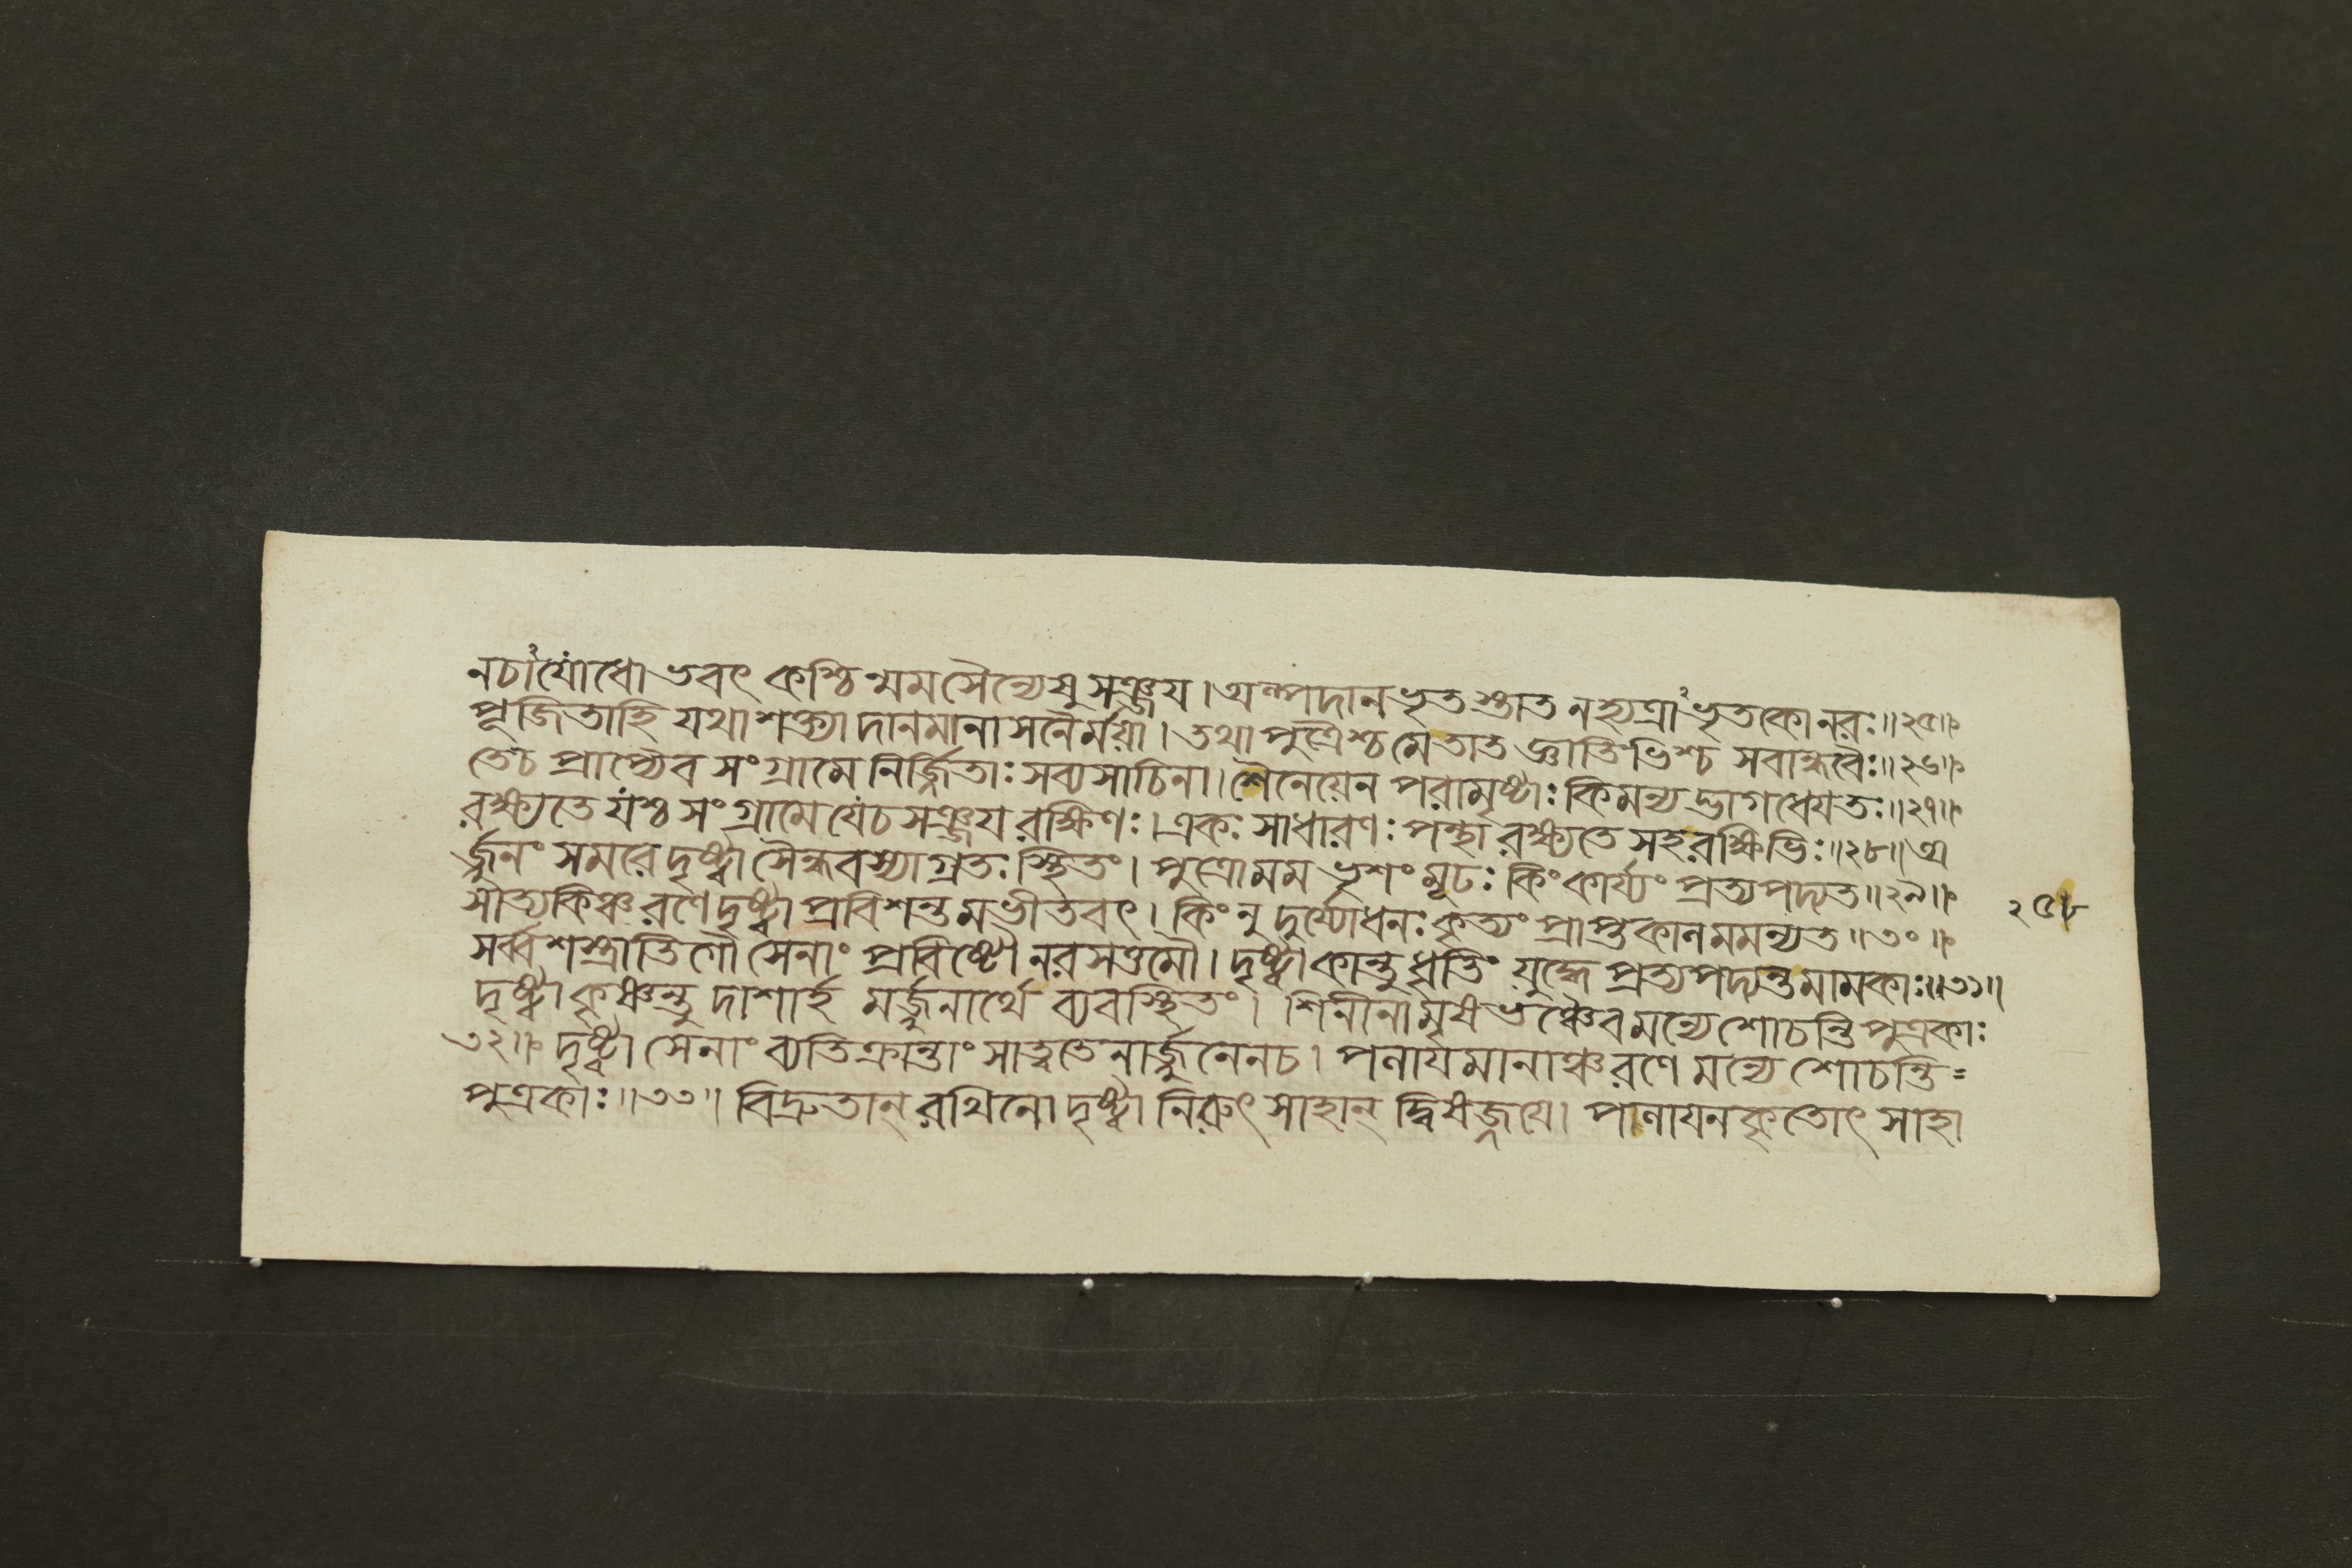 নচাযোধো ভবৎ কশ্চিন্মম সৈন্যেষু সঞ্জয়। অল্পদানভৃতস্তাত নহ্যত্রাভৃতকোনরঃ॥২৫॥
পূজিতাহি যথাশক্ত্যা দানমানাসনৈর্ময়া। তথা পুত্রৈশ্চ মেতাত জ্ঞাতিভিশ্চ সবান্ধবৈঃ॥২৬॥
তেচ প্রাপ্যৈব সংগ্রামে নির্জ্জিতাঃ সব্যসাচিনা। শৈনেয়েন পরামৃষ্টাঃ কিমন্যদ্ভাগধেয়তঃ॥২৭॥
রক্ষ্যতে যশ্চ সংগ্রামে যেচ সঞ্জয় রক্ষিণঃ। একঃ সাধারণঃ পন্থা রক্ষ্যতে সহরক্ষিভিঃ॥২৮॥ অ
র্জ্জুনং সমরে দৃষ্ট্বা সৈন্ধবস্যাগ্রতঃ স্থিতং। পুত্রোমম ভৃশং মূঢঃ কিংকার্য্যং প্রত্যপদ্যত॥২৯॥
সাত্যকিঞ্চ রণে দৃষ্ট্বা প্রবিশন্তমভীতবৎ। কিং নু দুর্য্যোধনঃ কৃত্যং প্রাপ্তকালমমন্যত॥৩০॥
২৫৮
সর্ব্বশস্ত্রাতিগৌ সেনাং প্রবিষ্টৌ নরসত্তমৌ। দৃষ্ট্বা কান্তু ধৃতিং যুদ্ধে প্রত্যপদ্যন্ত মামকাঃ॥৩১॥
দৃষ্ট্বা কৃষ্ণন্তু দাশার্হ মর্জ্জুনার্থে ব্যবস্থিতং। শিনীনামৃষভঞ্চৈব মন্যে শোচন্তি পুত্রকাঃ
৩২॥ দৃষ্ট্বা সেনাং ব্যতিক্রান্তাং সাত্বতেনার্জ্জুনেনচ। পলায়মানাঞ্চ রণে মন্যে শোচন্তি=
পুত্রকাঃ॥৩৩॥ বিদ্রুতান্ রথিনো দৃষ্ট্বা নিরুৎসাহান্ দ্বিষজ্জয়ে। পালায়ন কৃতোৎসাহা